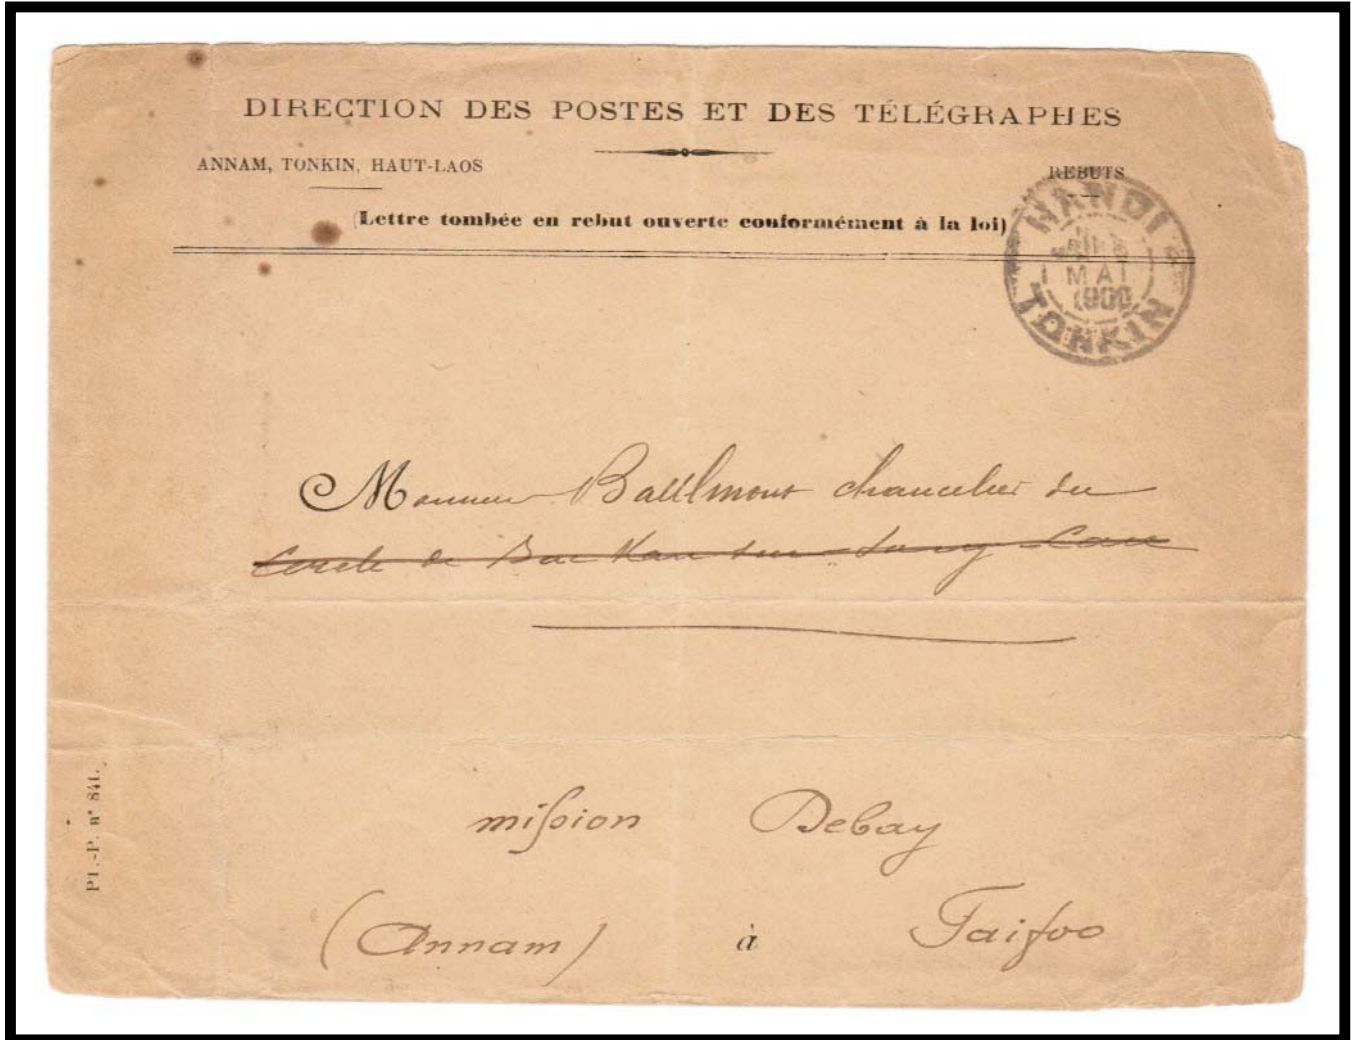 DIRECTION DES POSTES ET DES TÉLÉGRAPHES
ANNAM, TONKIN, HAUT-LAOS
REBUTS
(Lettre tombée en rebut ouverte conformément à la loi)
HANOI
1 MAI
1900
TONKIN
Monsieur chancelier du
Cercle de Bac Kan sur Song Cau
mission Debay
(Annam) à Faifoo
PT.-P. n°